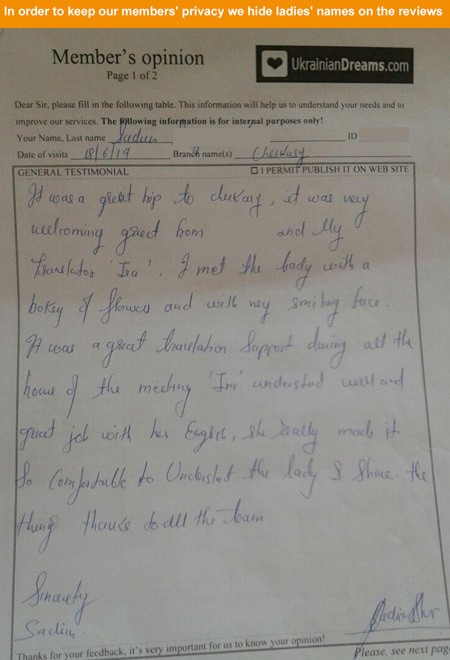 In order to keep our members' privacy we hide ladies' names on the reviews
Member's opinion
Page 1 of 2
UkrainianDreams.com
Dear Sir, please fill in the following table. This information will help us to understand your needs and to
improve our services. The following information is for internal purposes only!
Your Name, Last name ID
Date of visits 18/6/19 Branch name(s) Cherkasy
GENERAL TESTIMONIAL I PERMIT PUBLISH IT ON WEB SITE
It was a great trip to , it was very
welcoming greet from and My
translator 'Ira'. I met the lady with a
bokey of flowers and with very smiling face.
It was a great translation Support during all the
hours of the meeting 'Ira' understood well and
great job with her English, she really made it
So Comfortable to Understand the lady & Share the
thing thanks to all the team
Sincerely
Thanks for your feedback, it's very important for us to know your opinion!
Please, see next page